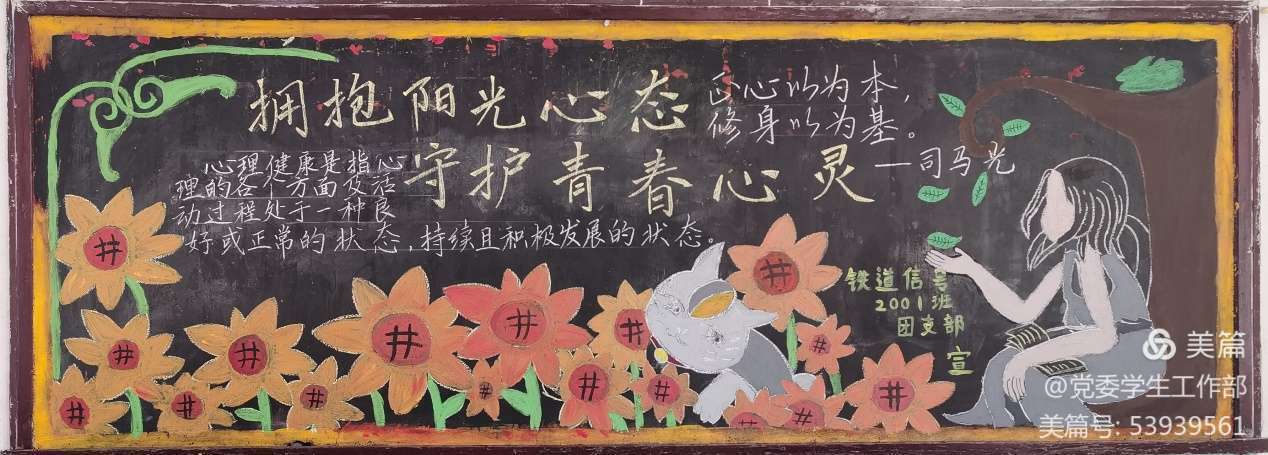 拥抱阳光心态
守护青春心灵
正心以为本，
修身以为基。
——司马光
心理健康是指心
理的各个方面及活
动过程处于一种良
好或正常的状态，持续且积极发展的状态。
铁道信号
2001班
团支部
宣
美篇
@党委学生工作部
美篇号: 53939561